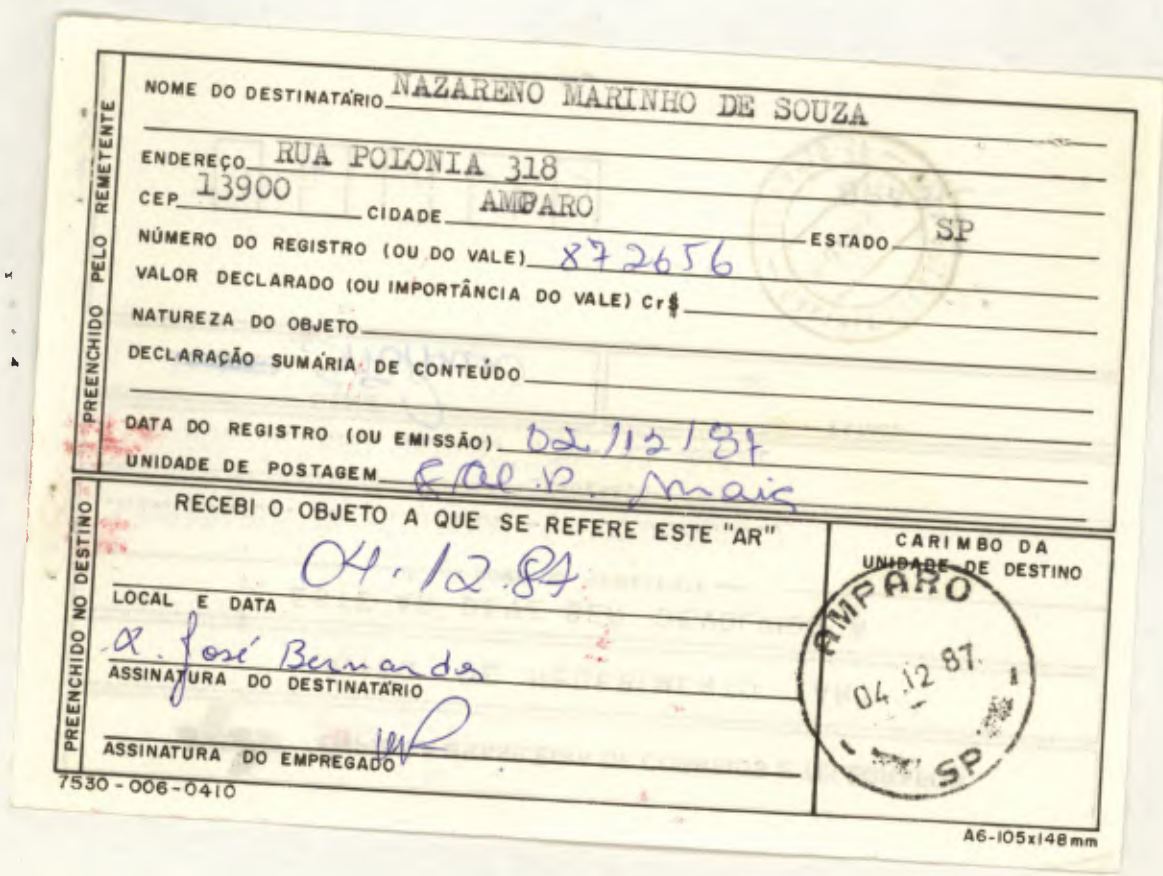 PREENCHIDO PELO REMETENTE
NOME DO DESTINATÁRIO NAZARENO MARINHO DE SOUZA
ENDEREÇO RUA POLONIA 318
CEP 13900 CIDADE AMPARO ESTADO SP
NÚMERO DO REGISTRO (OU DO VALE) 872656
VALOR DECLARADO (OU IMPORTÂNCIA DO VALE) Cr$
NATUREZA DO OBJETO
DECLARAÇÃO SUMÁRIA DE CONTEÚDO
DATA DO REGISTRO (OU EMISSÃO) 02/12/87
UNIDADE DE POSTAGEM
PREENCHIDO NO DESTINO
RECEBI O OBJETO A QUE SE REFERE ESTE "AR"
04.12.87
LOCAL E DATA
José Bernardes
ASSINATURA DO DESTINATÁRIO
ASSINATURA DO EMPREGADO
CARIMBO DA
UNIDADE DE DESTINO
AMPARO
04 12 87
SP
7530-006-0410
A6-105x148mm